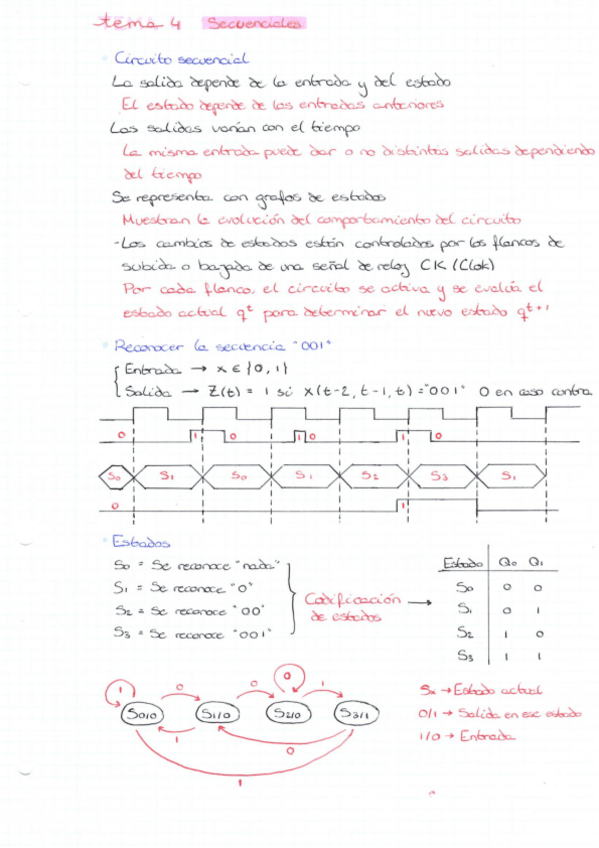 tema 4 Secuenciales
Circuito secuencial
La salida depende de la entrada y del estado
El estado depende de las entradas anteriores
Las salidas varían con el tiempo
La misma entrada puede dar o no distintas salidas dependiendo
del tiempo
Se representa con grafos de estados
Muestran la evolución del comportamiento del circuito
-Los cambios de estados están controlados por los flancos de
subida o bajada de una señal de reloj CK (Clok)
Por cada flanco, el circuito se activa y se evalúa el
estado actual qᵗ para determinar el nuevo estado qᵗ⁺¹
Reconocer la secuencia "001"
Entrada → x ∈ {0,1}
Salida → Z(t) = 1 si x(t-2, t-1, t) = "001" 0 en caso contra.
0 1 0 1 0 1 0
S0 S1 S0 S1 S2 S3 S1
0 1
Estados
S0 = Se reconoce "nada"
S1 = Se reconoce "0"
S2 = Se reconoce "00"
S3 = Se reconoce "001"
Codificación
de estados
Estado Q0 Q1
S0 0 0
S1 0 1
S2 1 0
S3 1 1
1 0 0 0 1
S0/0 S1/0 S2/0 S3/1
1 0
1
Sx → Estado actual
0/1 → Salida en ese estado
1/0 → Entrada